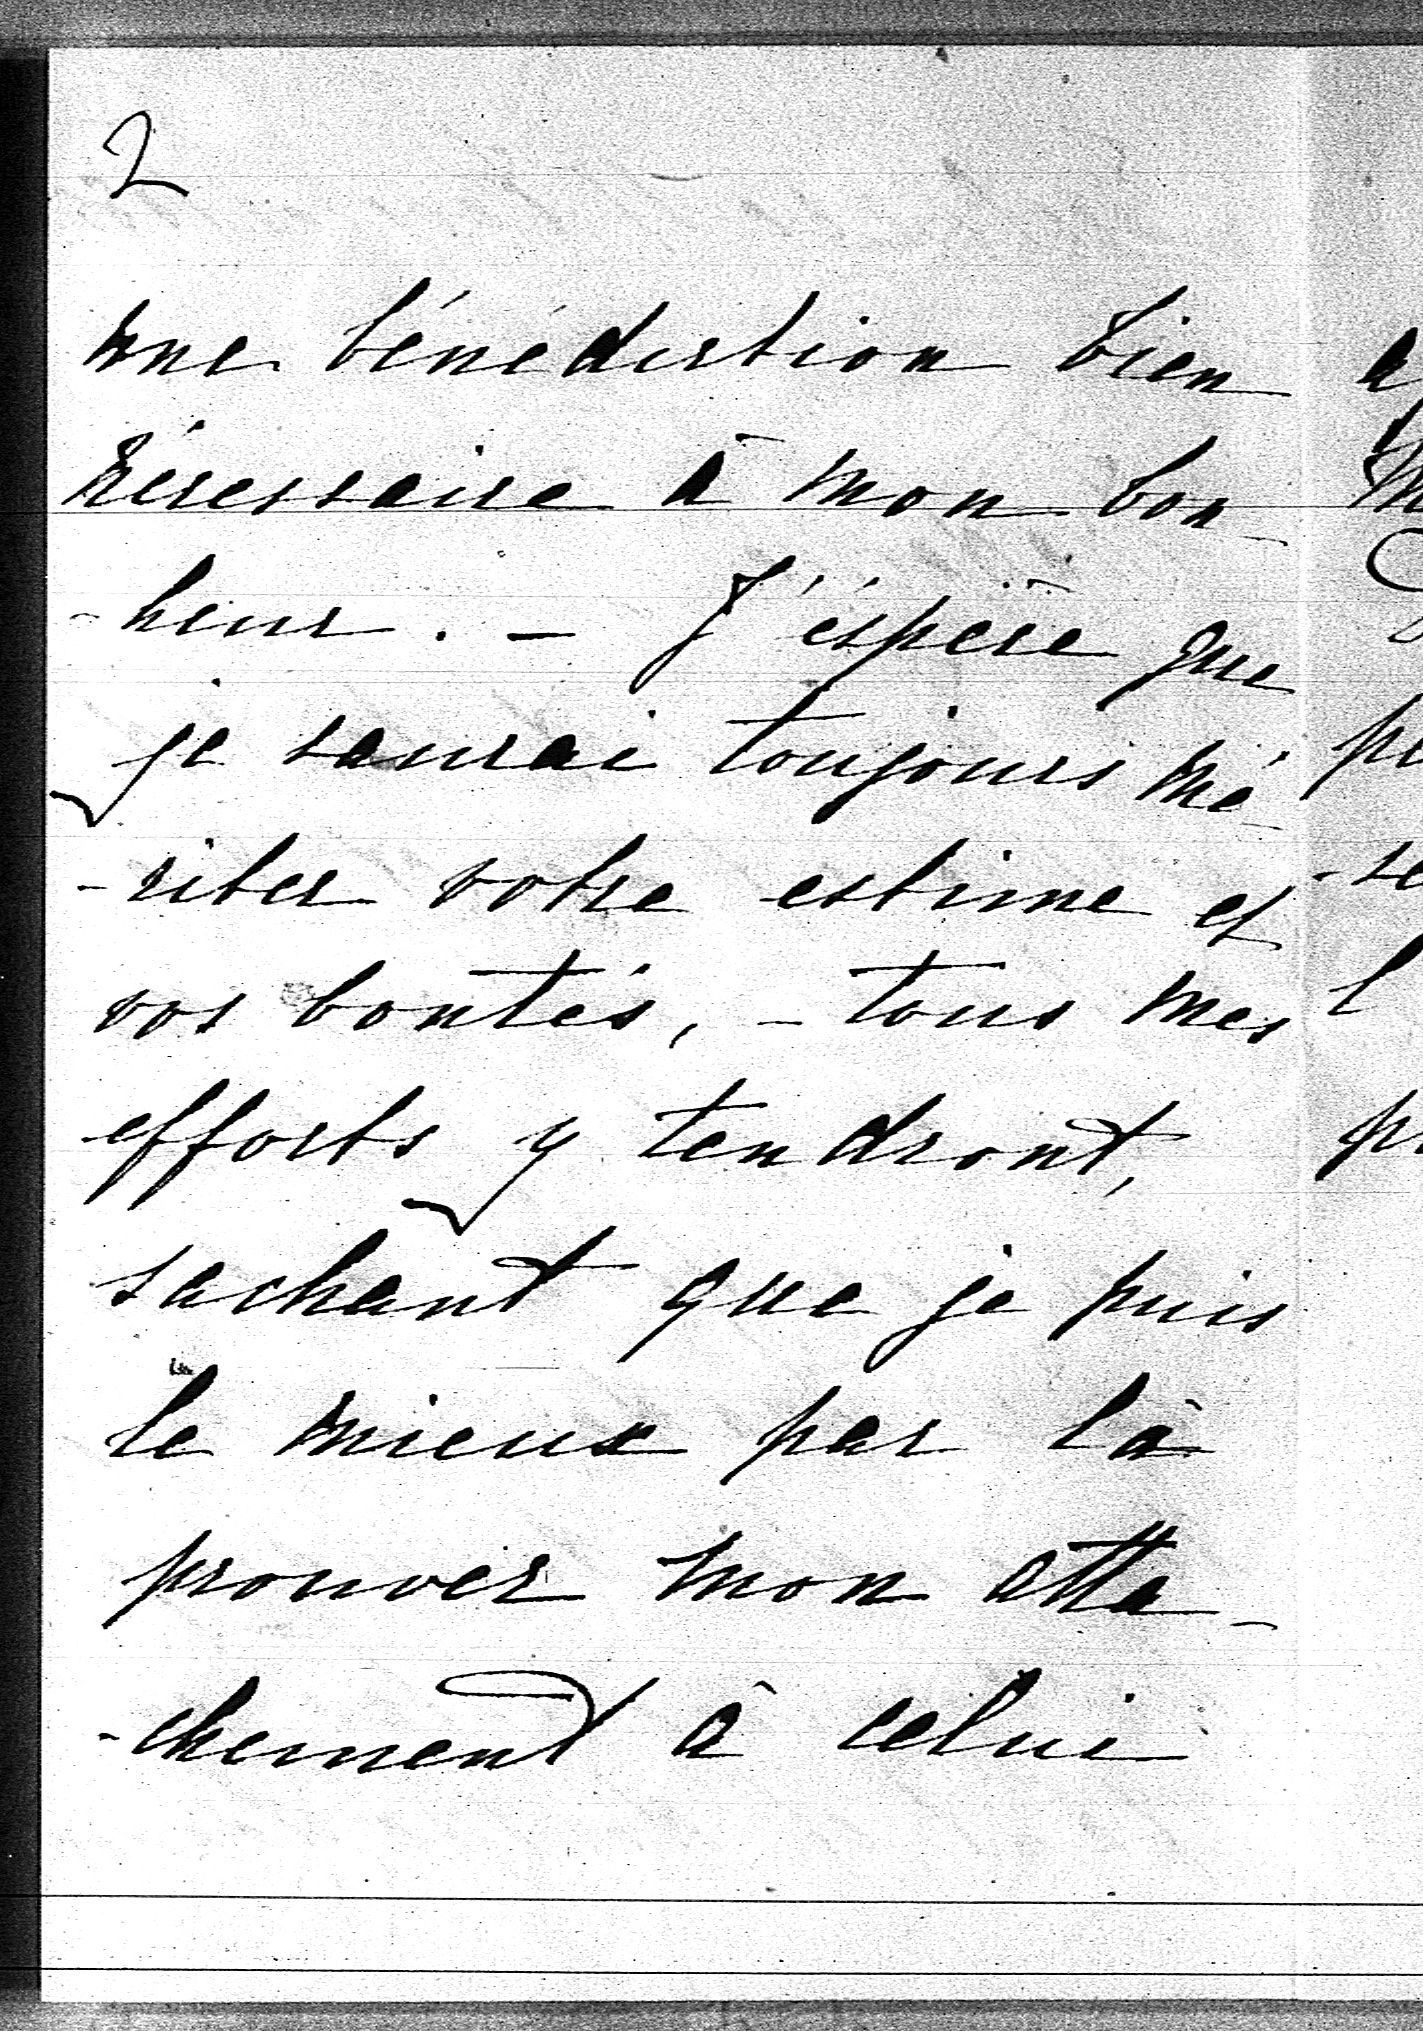 2
une bénédiction bien
nécessaire à mon bon-
-heur. — J'éspère que
je saurai toujours mé-
-riter votre estime et
vos bontés, - tous mes
efforts y tendront,
sachant que je puis
le mieux par là
prouver mon atta-
-chement à celui